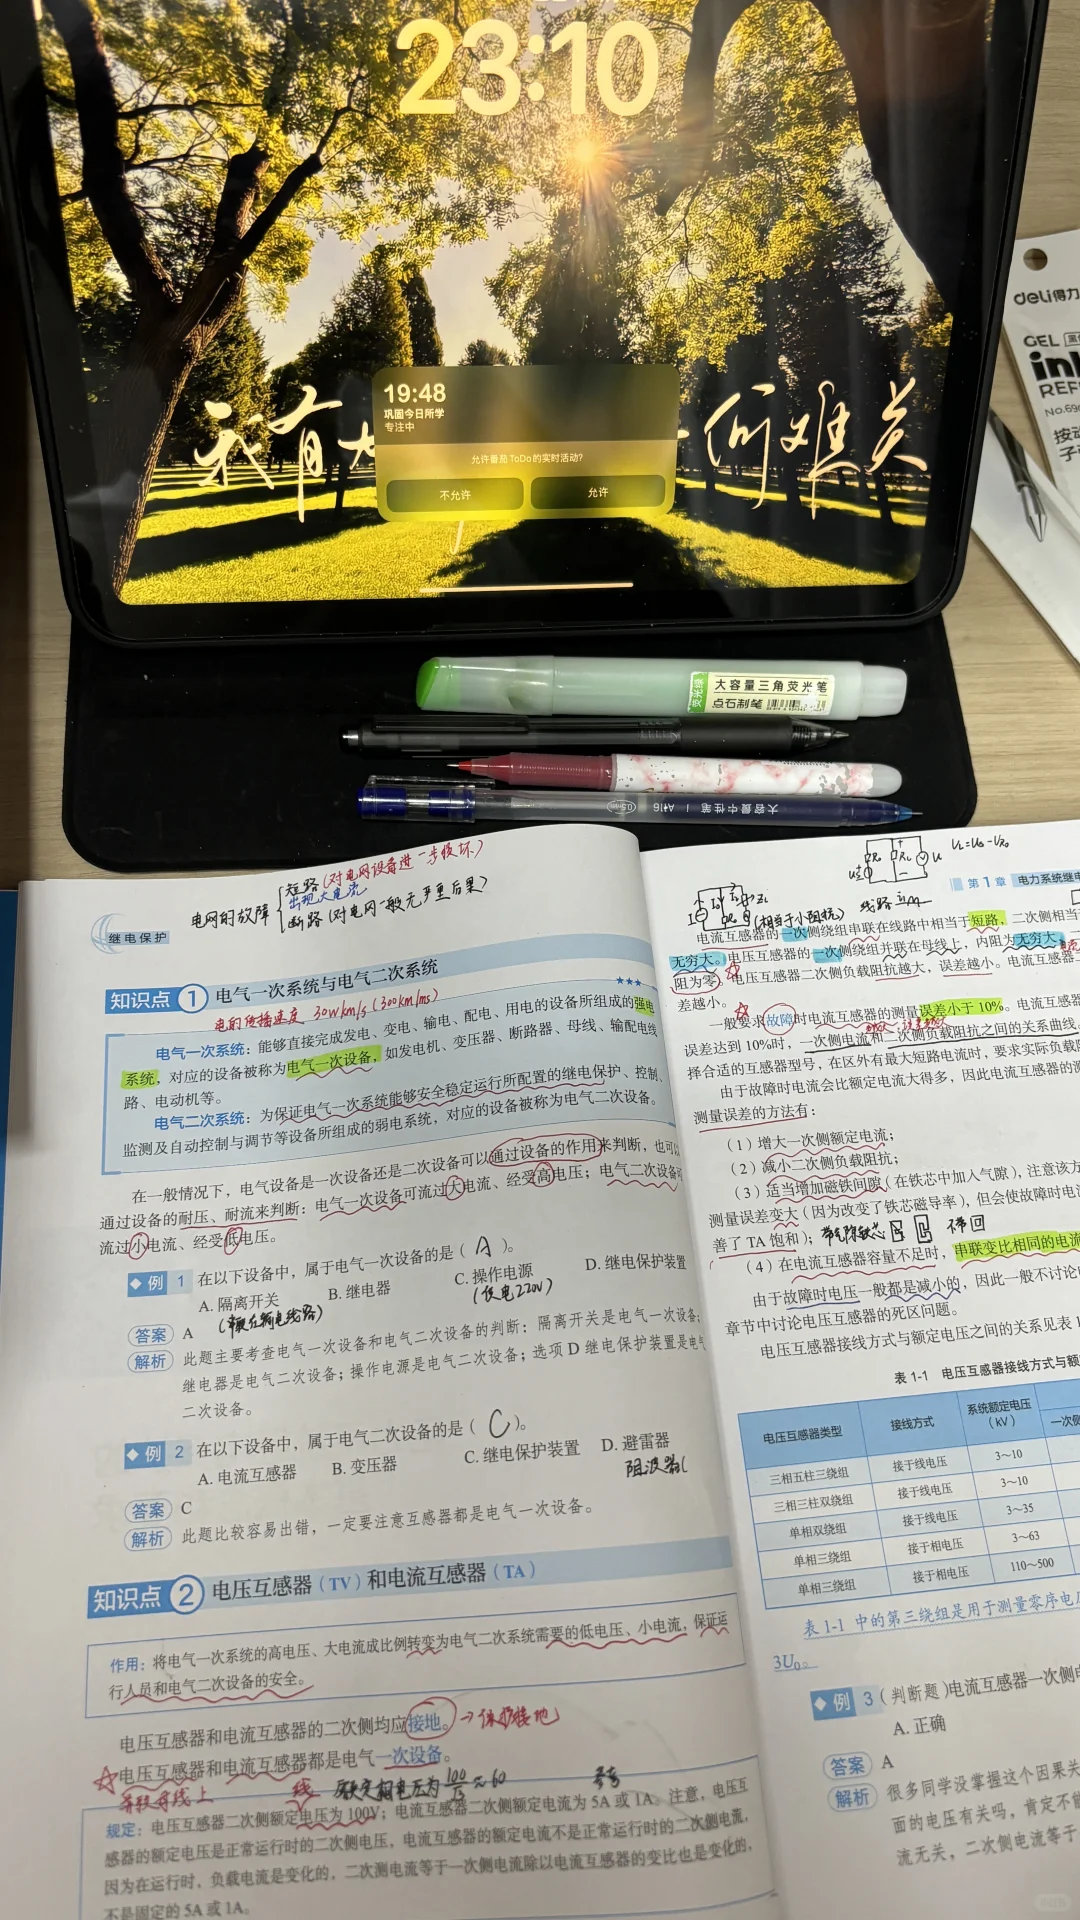 23:10
19:48
巩固今日所学
专注中
允许番茄ToDo的实时活动?
不允许
允许
我有
何难关
deli得力
GEL
REF
按动
子弹
荧光绿
大容量三角荧光笔
点石制笔
大容量中性笔 A416 0.5mm
继电保护
电网的故障
短路(对电网设备进一步损坏)
出现大电流
断路(对电网一般无严重后果)
知识点1 电气一次系统与电气二次系统
★★★
电的传播速度 30w km/s (300km/ms)
电气一次系统:能够直接完成发电、变电、输电、配电、用电的设备所组成的强电
系统,对应的设备被称为电气一次设备,如发电机、变压器、断路器、母线、输配电线
路、电动机等。
电气二次系统:为保证电气一次系统能够安全稳定运行所配置的继电保护、控制、
监测及自动控制与调节等设备所组成的弱电系统,对应的设备被称为电气二次设备。
在一般情况下,电气设备是一次设备还是二次设备可以通过设备的作用来判断,也可以
通过设备的耐压、耐流来判断:电气一次设备可流过大电流、经受高电压;电气二次设备可
流过小电流、经受低电压。
例 1 在以下设备中,属于电气一次设备的是( A )。
A. 隔离开关 B. 继电器 C. 操作电源 D. 继电保护装置
(低电220V)
答案 A
解析 此题主要考查电气一次设备和电气二次设备的判断:隔离开关是电气一次设备;
继电器是电气二次设备;操作电源是电气二次设备;选项 D 继电保护装置是电气
二次设备。
例 2 在以下设备中,属于电气二次设备的是( C )。
A. 电流互感器 B. 变压器 C. 继电保护装置 D. 避雷器
阻波器(
答案 C
解析 此题比较容易出错,一定要注意互感器都是电气一次设备。
知识点2 电压互感器(TV)和电流互感器(TA)
作用:将电气一次系统的高电压、大电流成比例转变为电气二次系统需要的低电压、小电流,保证运
行人员和电气二次设备的安全。
电压互感器和电流互感器的二次侧均应接地。→保护接地
电压互感器和电流互感器都是电气一次设备。
线 额定相电压为 100/√3 ≈ 60
规定:电压互感器二次侧额定电压为 100V;电流互感器二次侧额定电流为 5A 或 1A。注意,电压互
感器的额定电压是正常运行时的二次侧电压,电流互感器的额定电流不是正常运行时的二次侧电流,
因为在运行时,负载电流是变化的,二次测电流等于一次侧电流除以电流互感器的变比也是变化的,
不是固定的 5A 或 1A。
第1章 电力系统继电
(相当于小阻抗) 线路
电流互感器的一次侧绕组串联在线路中相当于短路,二次侧相当
无穷大。电压互感器的一次侧绕组并联在母线上,内阻为无穷大,
阻为零。电压互感器二次侧负载阻抗越大,误差越小。电流互感器
差越小。
一般要求故障时电流互感器的测量误差小于 10%。电流互感器
误差达到 10%时,一次侧电流和二次侧负载阻抗之间的关系曲线
择合适的互感器型号,在区外有最大短路电流时,要求实际负载阻
由于故障时电流会比额定电流大得多,因此电流互感器的测
测量误差的方法有:
(1)增大一次侧额定电流;
(2)减小二次侧负载阻抗;
(3)适当增加磁铁间隙(在铁芯中加入气隙),注意该方
测量误差变大(因为改变了铁芯磁导率),但会使故障时电流
善了 TA 饱和);带气隙铁芯 不带
(4)在电流互感器容量不足时,串联变比相同的电流
由于故障时电压一般都是减小的,因此一般不讨论电
章节中讨论电压互感器的死区问题。
电压互感器接线方式与额定电压之间的关系见表 1
表 1-1 电压互感器接线方式与额
电压互感器类型 接线方式 系统额定电压(kV) 一次侧
三相五柱三绕组 接于线电压 3～10
三相三柱双绕组 接于线电压 3～10
单相双绕组 接于线电压 3～35
单相三绕组 接于相电压 3～63
单相三绕组 接于相电压 110～500
表 1-1 中的第三绕组是用于测量零序电
3U₀。
例 3 (判断题)电流互感器一次侧
A. 正确
答案 A
解析 很多同学没掌握这个因果关
面的电压有关吗,肯定不能
流无关,二次侧电流等于